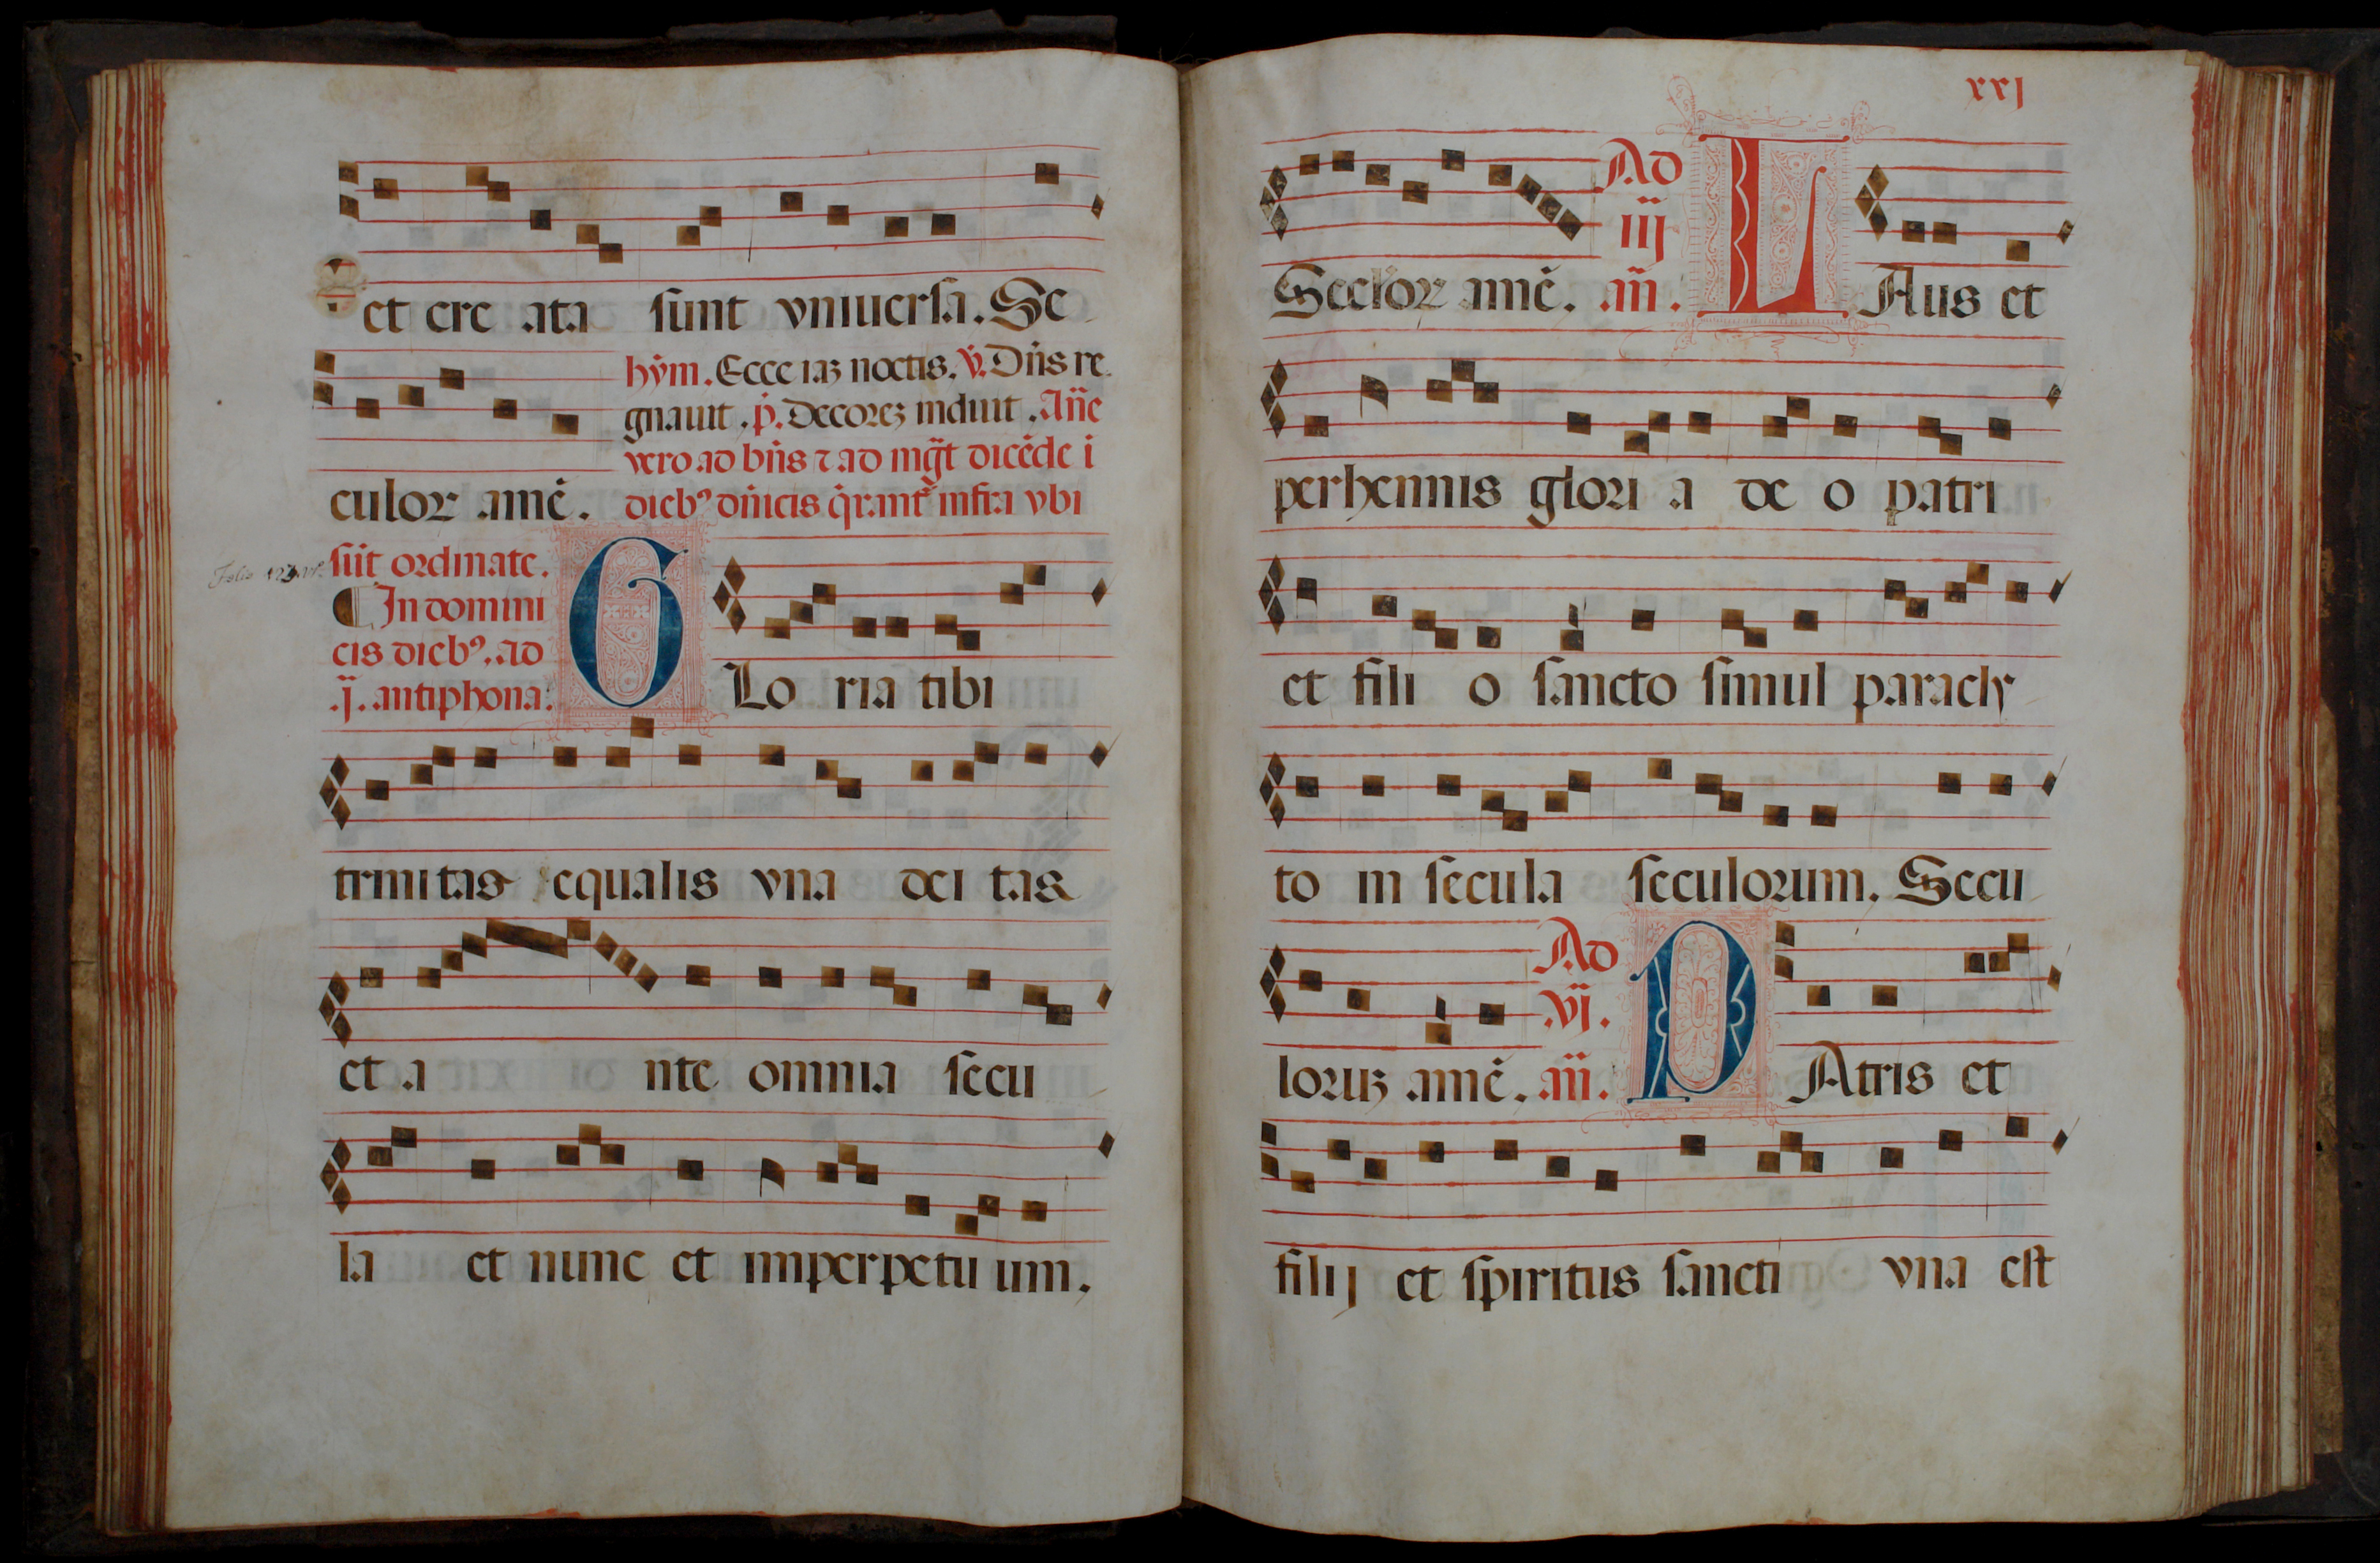 et cre ata sunt vniuersa. Se
hẏm. Ecce iaʒ noctis. ꝟ. Dn̄s re
gnauit. ṗ. Decoreʒ induit. Añe
vero ad bn̄s ⁊ ad mg̃t dicēde i
culoꝝ amē. diebꝰ dn̄icis q̇rant᷑ infra vbi
sūt ordinate.
¶ In domini
cis diebꝰ. ad
.j. antiphona.
GLo ria tibi
trinitas equalis vna dei tas
et a nte omnia secu
la et nunc et imperpetu um.
xxj
Secl'oꝝ amē. Ad iij añ. LAus et
perhennis glori a de o patri
et fili o sancto simul paracly
to in secula seculorum. Secu
loruʒ amē. Ad vj. añ. PAtris et
filij et spiritus sancti vna est